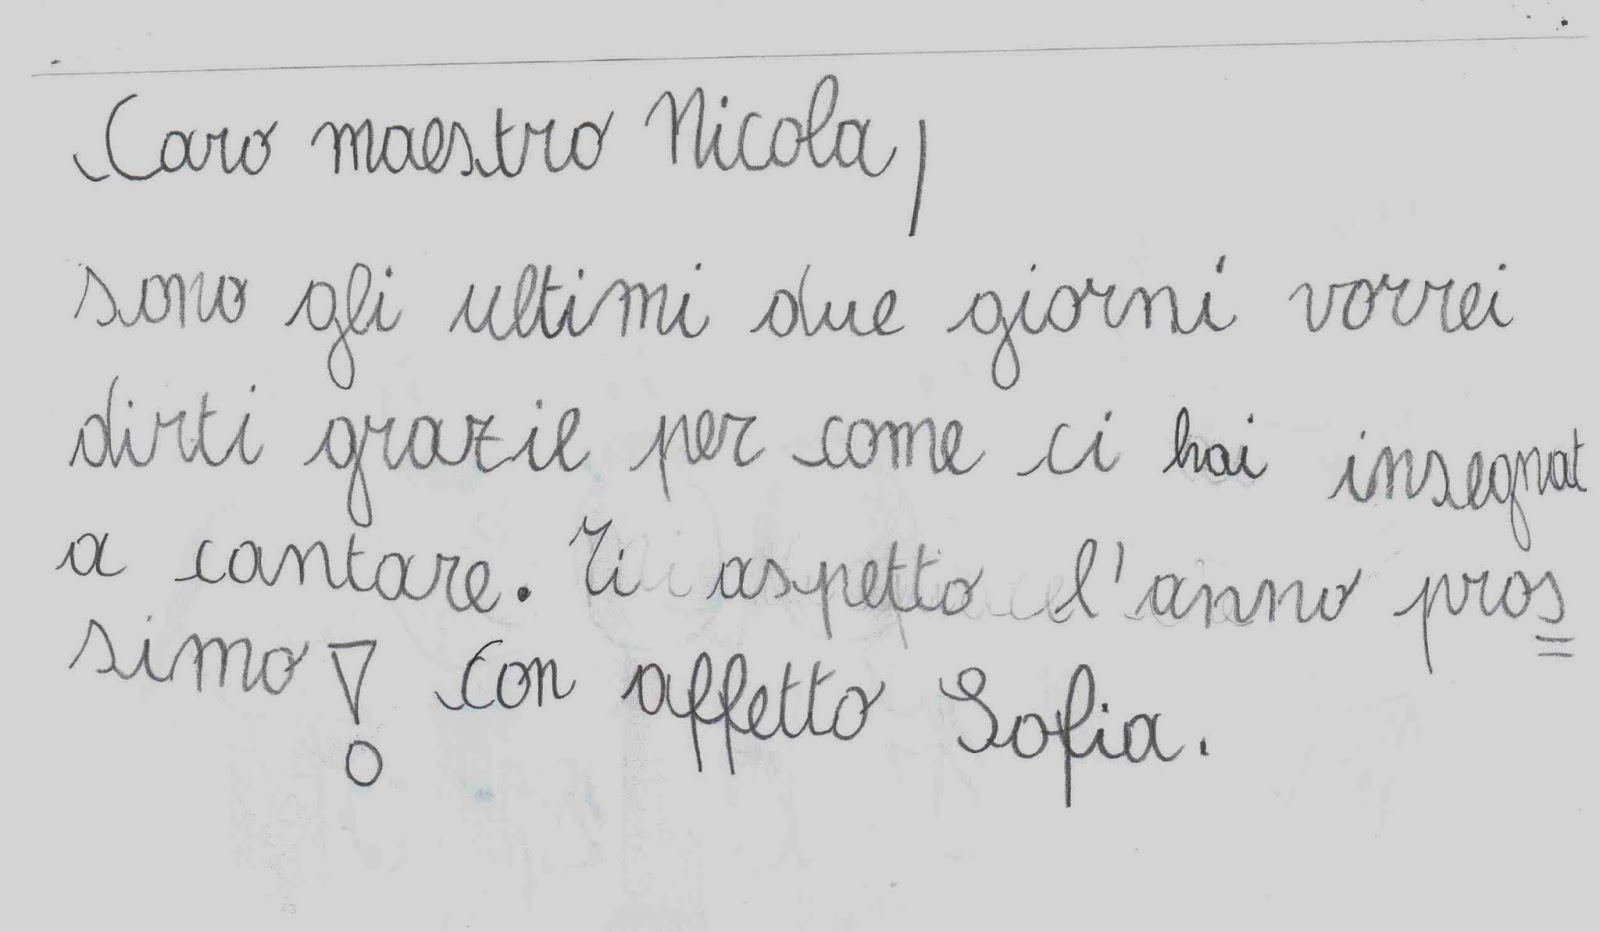 Caro maestro Nicola,
sono gli ultimi due giorni vorrei
dirti grazie per come ci hai insegnat
a cantare. Ti aspetto l'anno pros=
simo! Con affetto Sofia.